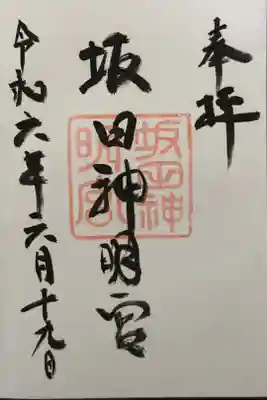 奉拝
坂田神明宮
坂田神
明宮
令和六年六月十九日